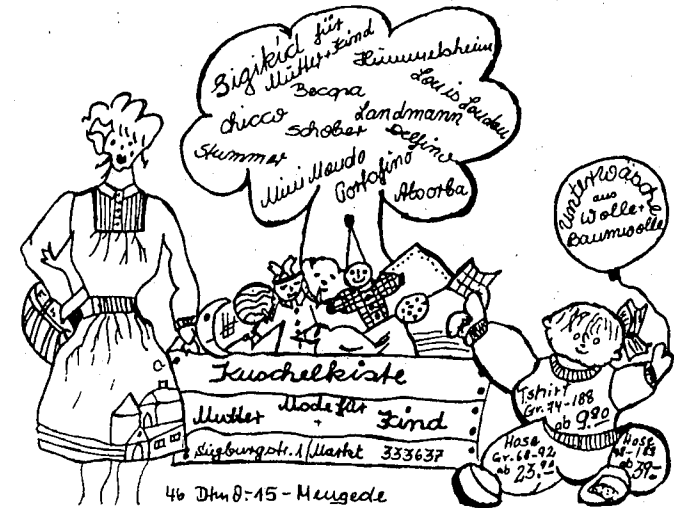 Sigikid für
Mutter + Kind
Himmelsheim
Becopa
Louis Loudou
Chicco
Schober
Landmann
Delfino
Stummer
Mini Moudo
Portofino
Absorba
Unterwäsche
aus
Wolle +
Baumwolle
Kuschelkiste
Mutter + Kind
Mode für
Siegburgstr. 1 / Markt 333637
46 Dtmd.-15 - Mengede
Tshirt
Gr. 74-188
ab 9.90
Hose
Gr. 68-92
ab 23.90
Hose
ab 39.-